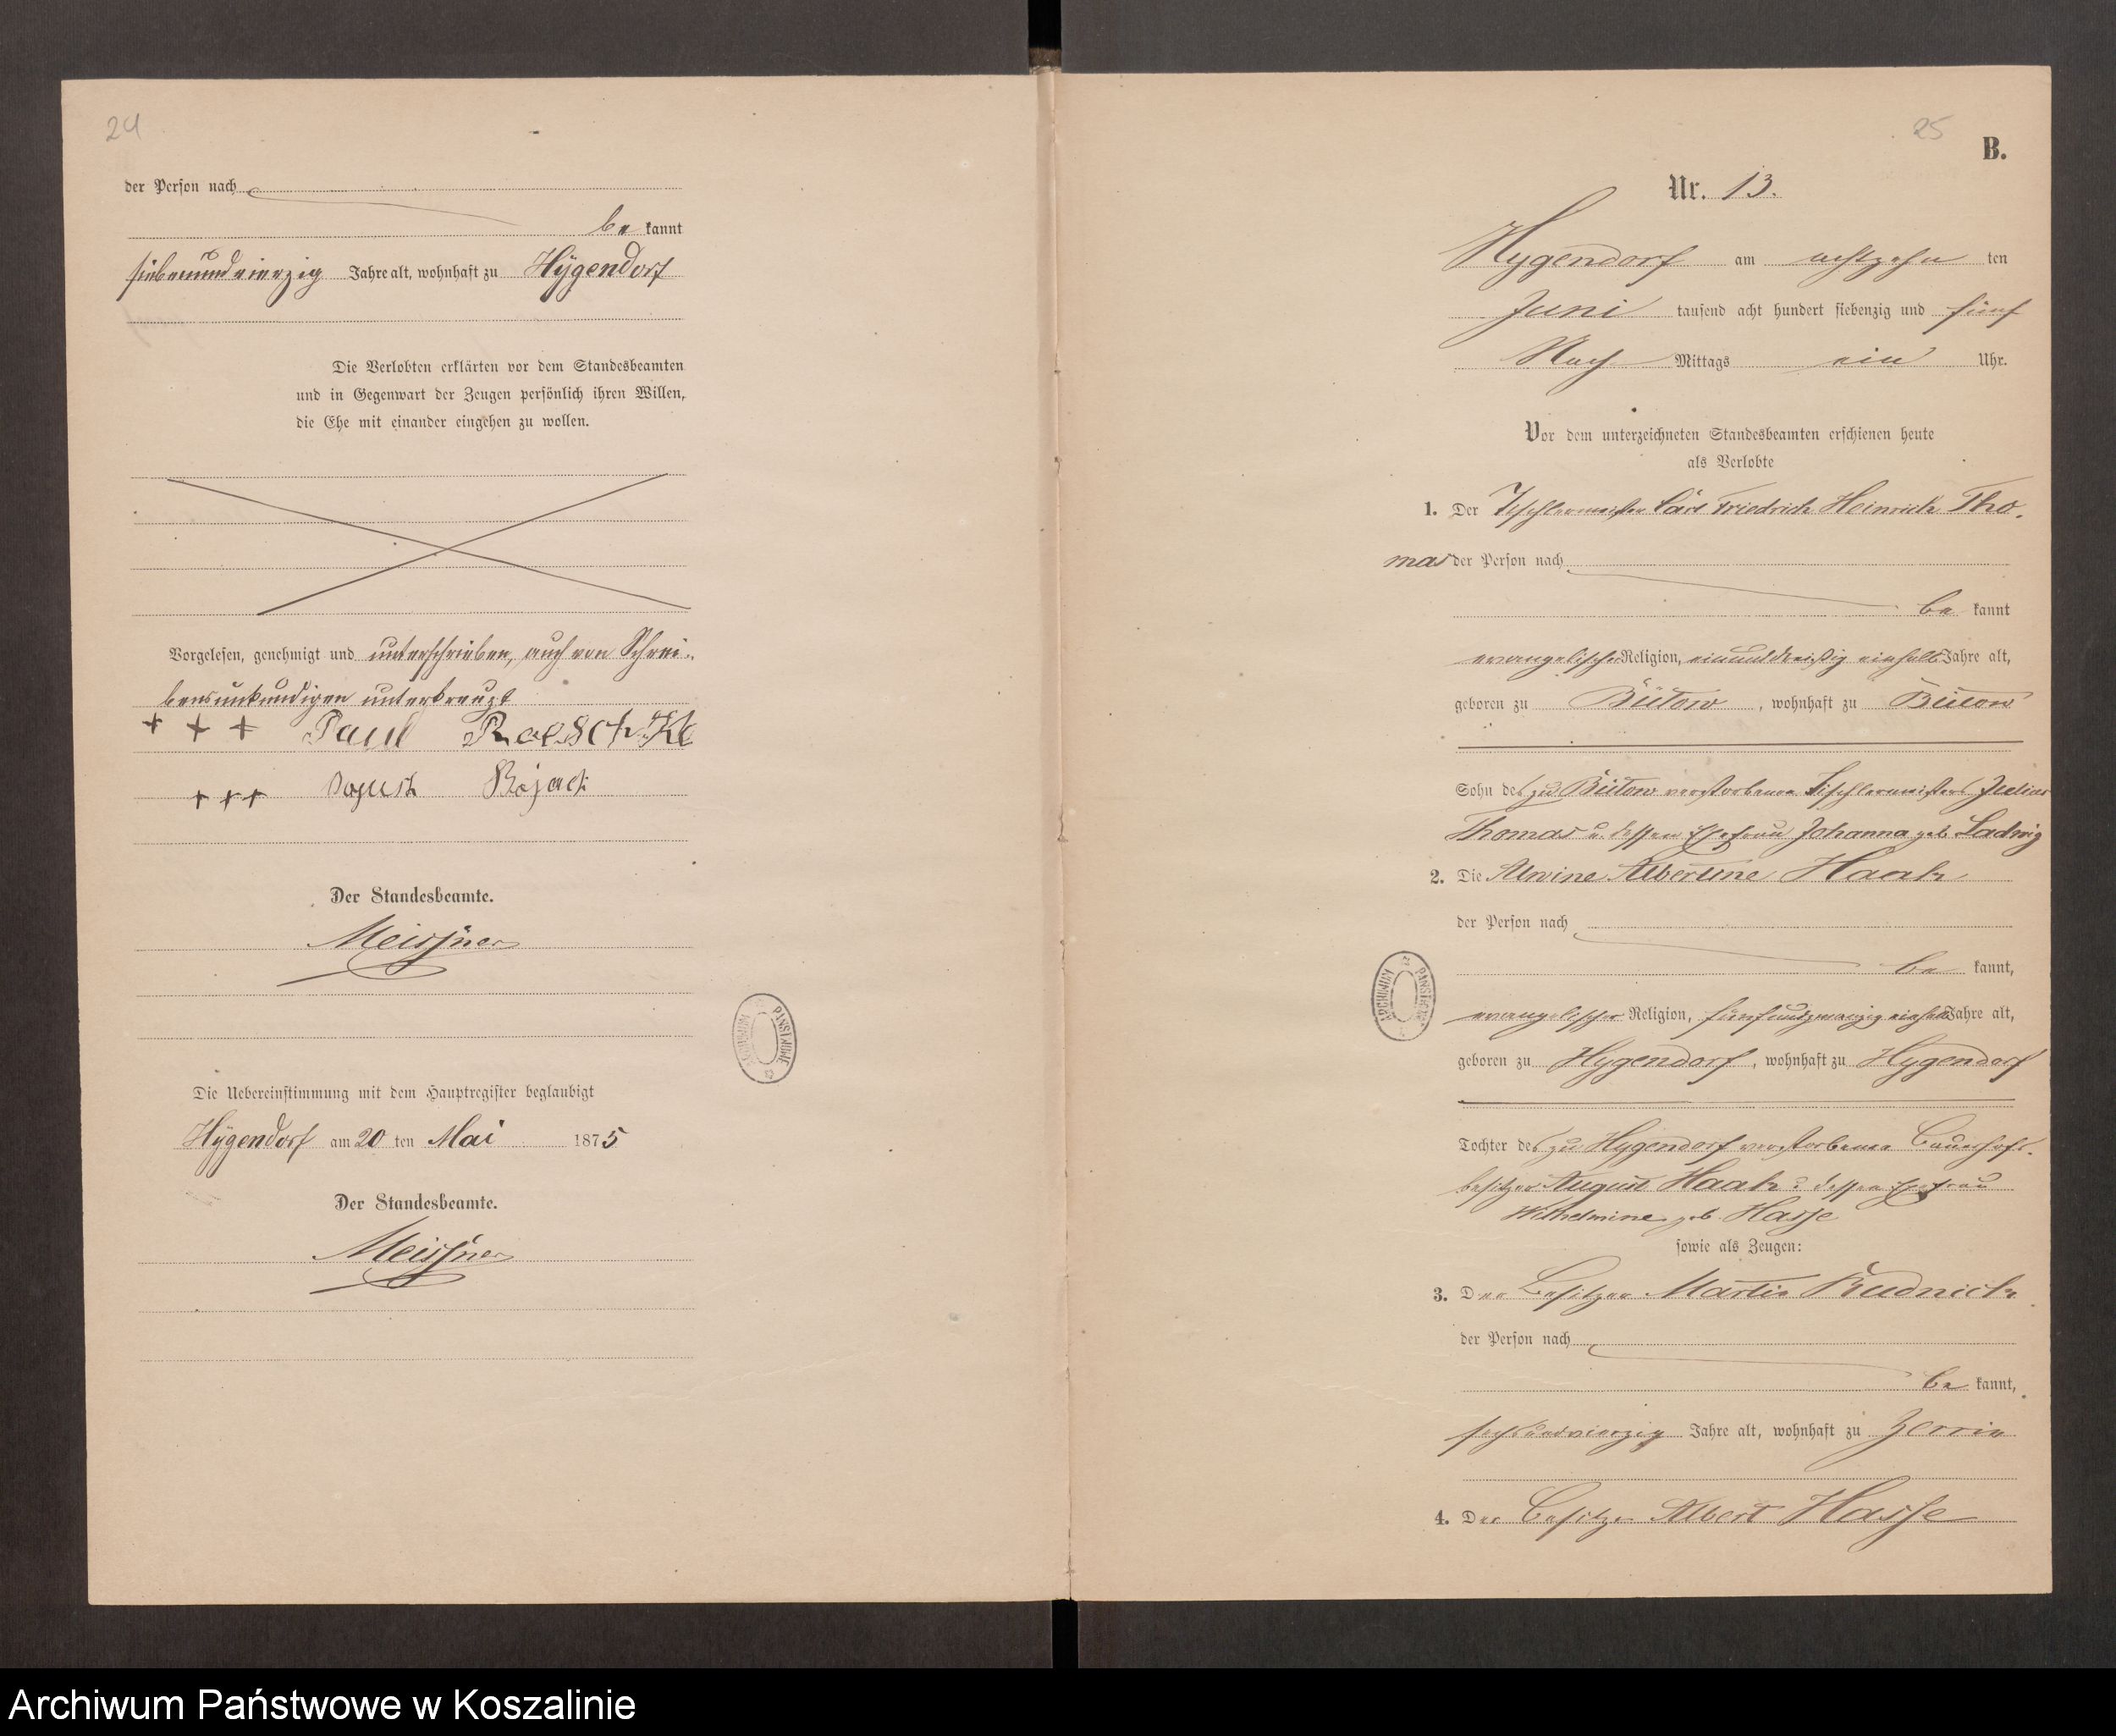 24
der Person nach
be kannt
siebenundvierzig Jahre alt, wohnhaft zu Hygendorf
Die Verlobten erklärten vor dem Standesbeamten
und in Gegenwart der Zeugen persönlich ihren Willen,
die Ehe mit einander eingehen zu wollen.
Vorgelesen, genehmigt und unterschrieben, auch von Schrei-
bensunkundigen unterkreuzt
+ + + Paul
+ + +
Der Standesbeamte.
Meissner
ARCHIWUM PAŃSTWOWE
Die Uebereinstimmung mit dem Hauptregister beglaubigt
Hygendorf am 20 ten Mai 1875
Der Standesbeamte.
Meissner
25
B.
Nr. 13.
Hygendorf am achtzehn ten
Juni tausend acht hundert siebenzig und fünf
Nach Mittags ein Uhr.
Vor dem unterzeichneten Standesbeamten erschienen heute
als Verlobte
1. Der Tischlermeister Carl Friedrich Heinrich Tho-
mas der Person nach
be kannt
evangelischer Religion, einunddreißig einhalb Jahre alt,
geboren zu Bütow, wohnhaft zu Bütow
Sohn des zu Bütow verstorbenen Tischlermeisters Julius
Thomas u. dessen Ehefrau Johanna geb. Ladwig
2. Die Alwine Albertine Haak
der Person nach
be kannt,
evangelischer Religion, fünfundzwanzig einhalb Jahre alt,
geboren zu Hygendorf, wohnhaft zu Hygendorf
Tochter des zu Hygendorf verstorbenen Bauerhofs-
besitzer August Haak u. dessen Ehefrau
Wilhelmine geb. Hasse
sowie als Zeugen:
3. Der Besitzer Martin Rudnick
der Person nach
be kannt,
sechsundvierzig Jahre alt, wohnhaft zu Zerrin
4. Der Besitzer Albert Hasse
ARCHIWUM PAŃSTWOWE
Archiwum Państwowe w Koszalinie